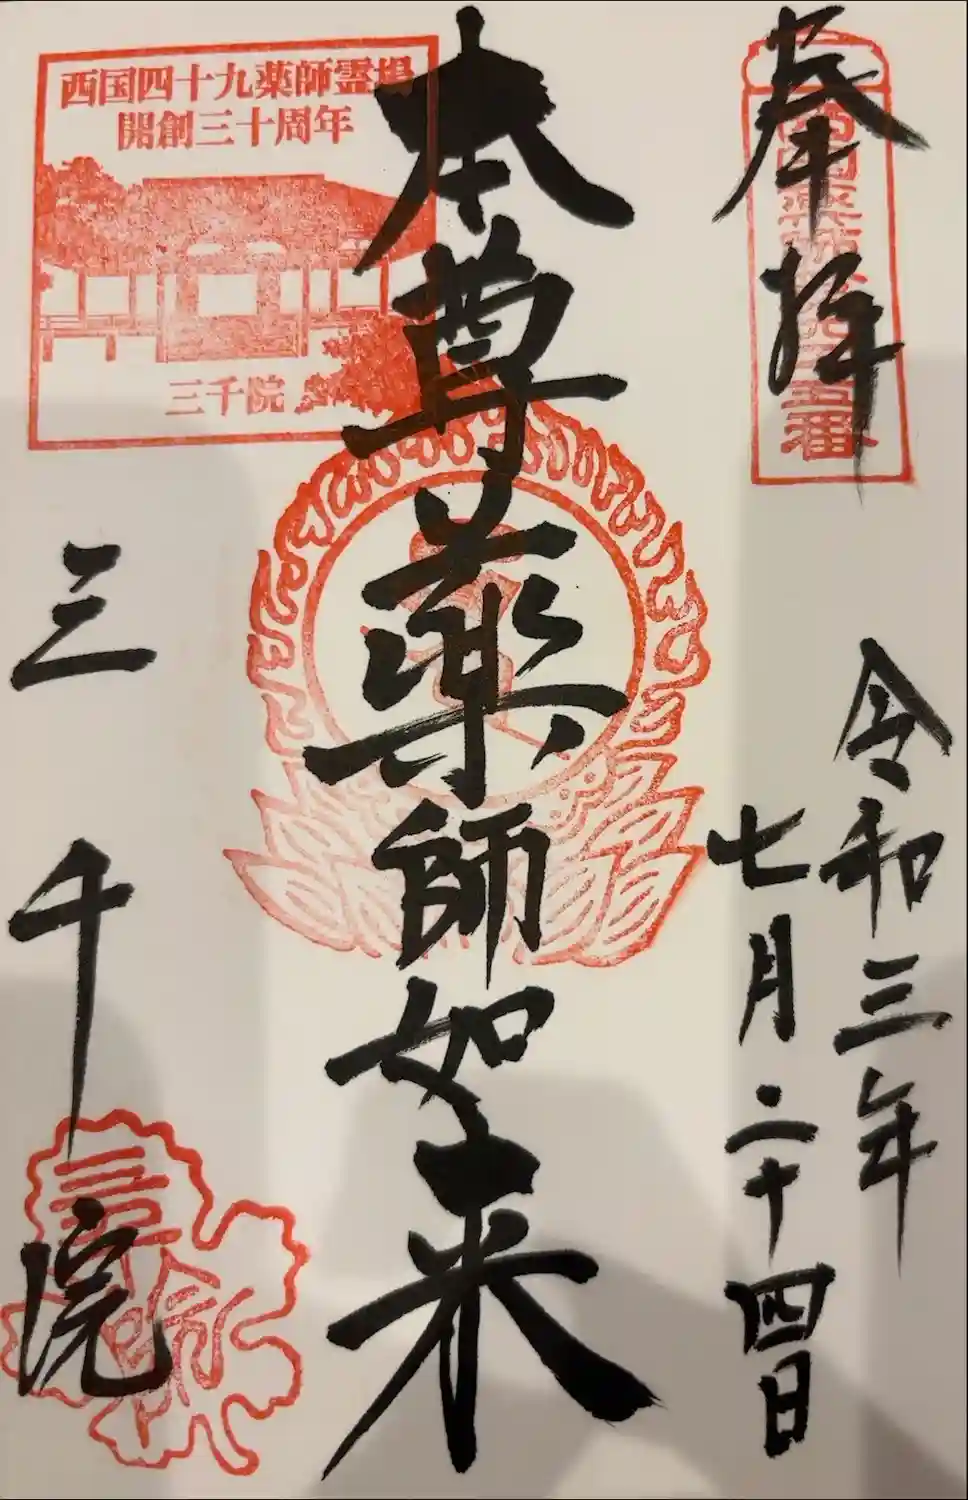 奉拝
西国薬師第四十五番
令和三年
七月二十四日
本尊薬師如来
西国四十九薬師霊場
開創三十周年
三千院
三千院